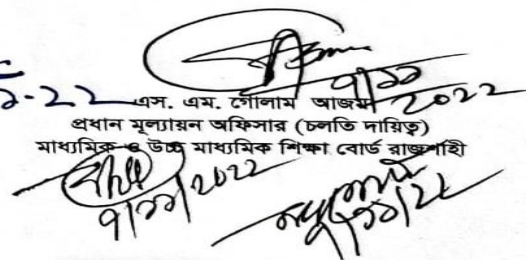 ৭/১১
২০২২
এস. এম. গোলাম আজম
প্রধান মূল্যায়ন অফিসার (চলতি দায়িত্ব)
মাধ্যমিক ও উচ্চ মাধ্যমিক শিক্ষা বোর্ড রাজশাহী
৭/১১/২০২২
৭/১১/২২